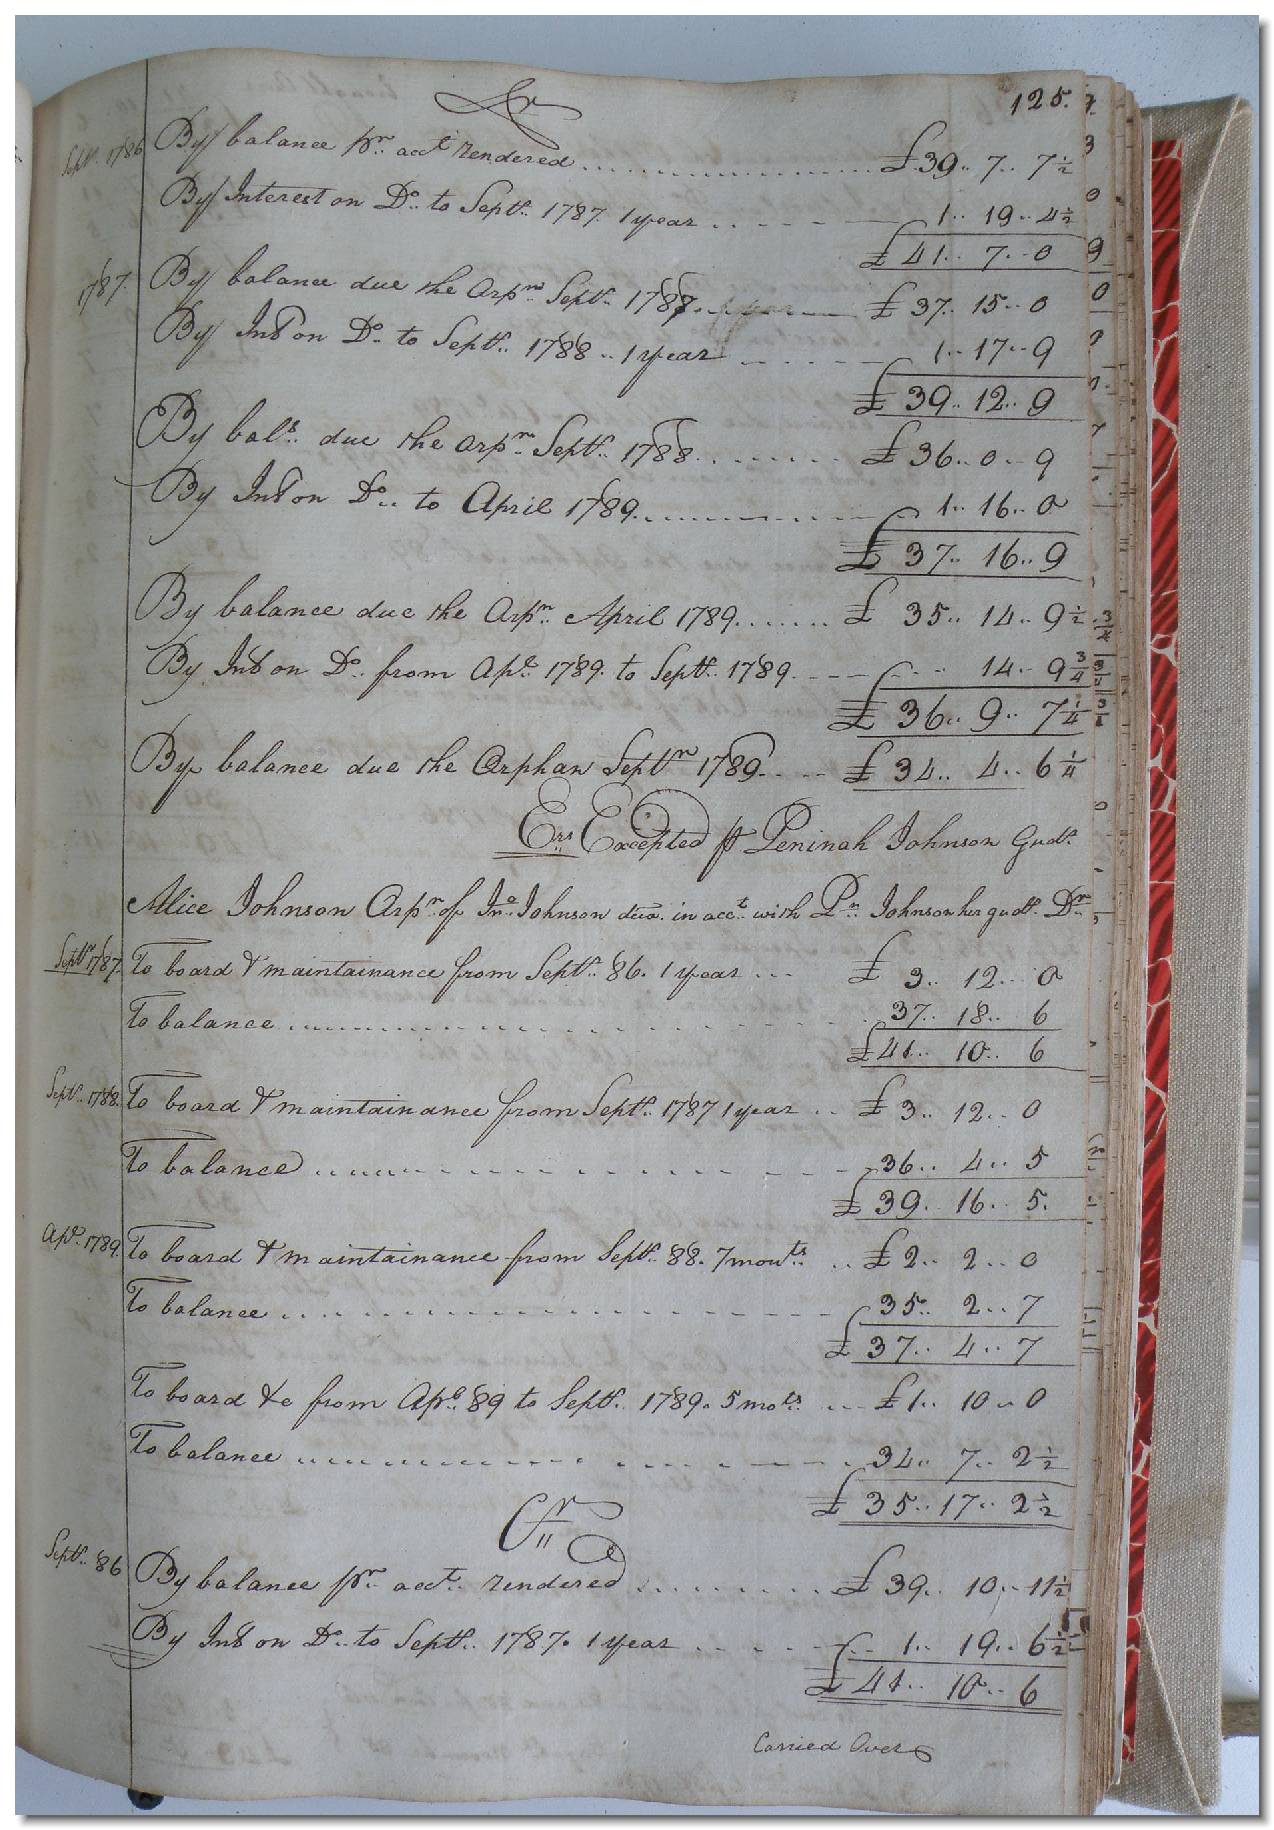 125.
Cr
Septr. 1786 By balance pr. acct. rendered ................ £39.. 7.. 7½
By Interest on Do. to Septr. 1787. 1 year .. - - - 1.. 19.. 4½
£41.. 7.. 0
1787. By balance due the Orpn. Septr. 1787. £37.. 15.. 0
By Int on Do. to Septr. 1788.. 1 year - - - 1.. 17.. 9
£39.. 12.. 9
By bals. due the orpn. Septr. 1788........ £36.. 0.. 9
By Int on Do.. to April 1789.............. 1.. 16.. 0
£37.. 16.. 9
By balance due the Orpn. April 1789....... £ 35.. 14.. 9½
By Int on Do. from Apl. 1789. to Septr. 1789. - - - 14.. 9¾
£36.. 9.. 7¼
By balance due the Orphan Septr. 1789. ... £34.. 4.. 6¼
Ers. Excepted pr Peninah Johnson Gudn.
Alice Johnson Orpn. of Jno. Johnson decd. in acct. with Pn. Johnson her gudn. Dr.
Septr 1787. To board & maintainance from Septr. 86. 1 year ... £ 3.. 12.. 0
To balance ................ 37.. 18.. 6
£41.. 10.. 6
Septr. 1788. To board & maintainance from Septr. 1787 1 year .. £3.. 12.. 0
To balance ................ 36.. 4.. 5
£39.. 16.. 5.
Apl. 1789. To board & maintainance from Septr. 88. 7 monts. .. £2.. 2.. 0
To balance ................ 35.. 2.. 7
£37.. 4.. 7
To board &c from Apl. 89 to Septr. 1789. 5 mots. ... £1.. 10.. 0
To balance ................ 34.. 7.. 2½
£35.. 17.. 2½
Cr
Septr. 86 By balance pr. acct. rendered ......... £39.. 10.. 11½
By Int on Do.. to Septr. 1787. 1 year .... 1.. 19.. 6½
£41.. 10.. 6
Carried Over